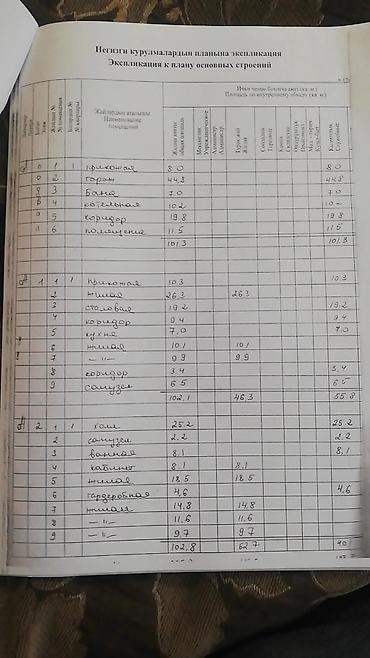 Негизги курулмалардын планына экспликация
Экспликация к плану основных строений
Ички ченөө боюнча аянт (кв. м.)
Площадь по внутреннему обмеру (кв. м.)
Жайлардын аталышы
Наименование помещений
Жалпы аянты
общая площадь
Турак жай
Жилая
0 1 1 прихожая 8.0 8.0
0 2 гараж 44,8 44,8
0 3 Баня 7.0 7.0
0 4 котельная 10.2 10.2
0 5 коридор 19.8 19.8
0 6 помещение 11.5 11.5
101.3 101.3
1 1 1 прихожая 10.3 10.3
2 жилая 26.3 26.3
3 столовая 19.2 19.2
4 коридор 9.4 9.4
5 кухня 7.0 7.0
6 жилая 10.1 10.1
7 —"— 9.9 9.9
8 коридор 3.4 3.4
9 санузел 6.5 6.5
102.1 46.3 55.8
2 1 1 холл 25.2 25.2
2 санузел 2.2 2.2
3 ванная 8.1 8.1
4 кабинет 8.1 8.1
5 жилая 18.5 18.5
6 гардеробная 4.6 4.6
7 жилая 14.8 14.8
8 —"— 11.6 11.6
9 —"— 9.7 9.7
102.8 62.7 40